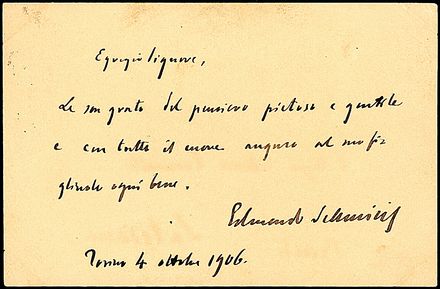 Egregio Signore,
Le son grato del pensiero pietoso e gentile
e con tutto il cuore auguro al suo fi-
gliuolo ogni bene.
Edmondo De Amicis
Torino 4 ottobre 1906.